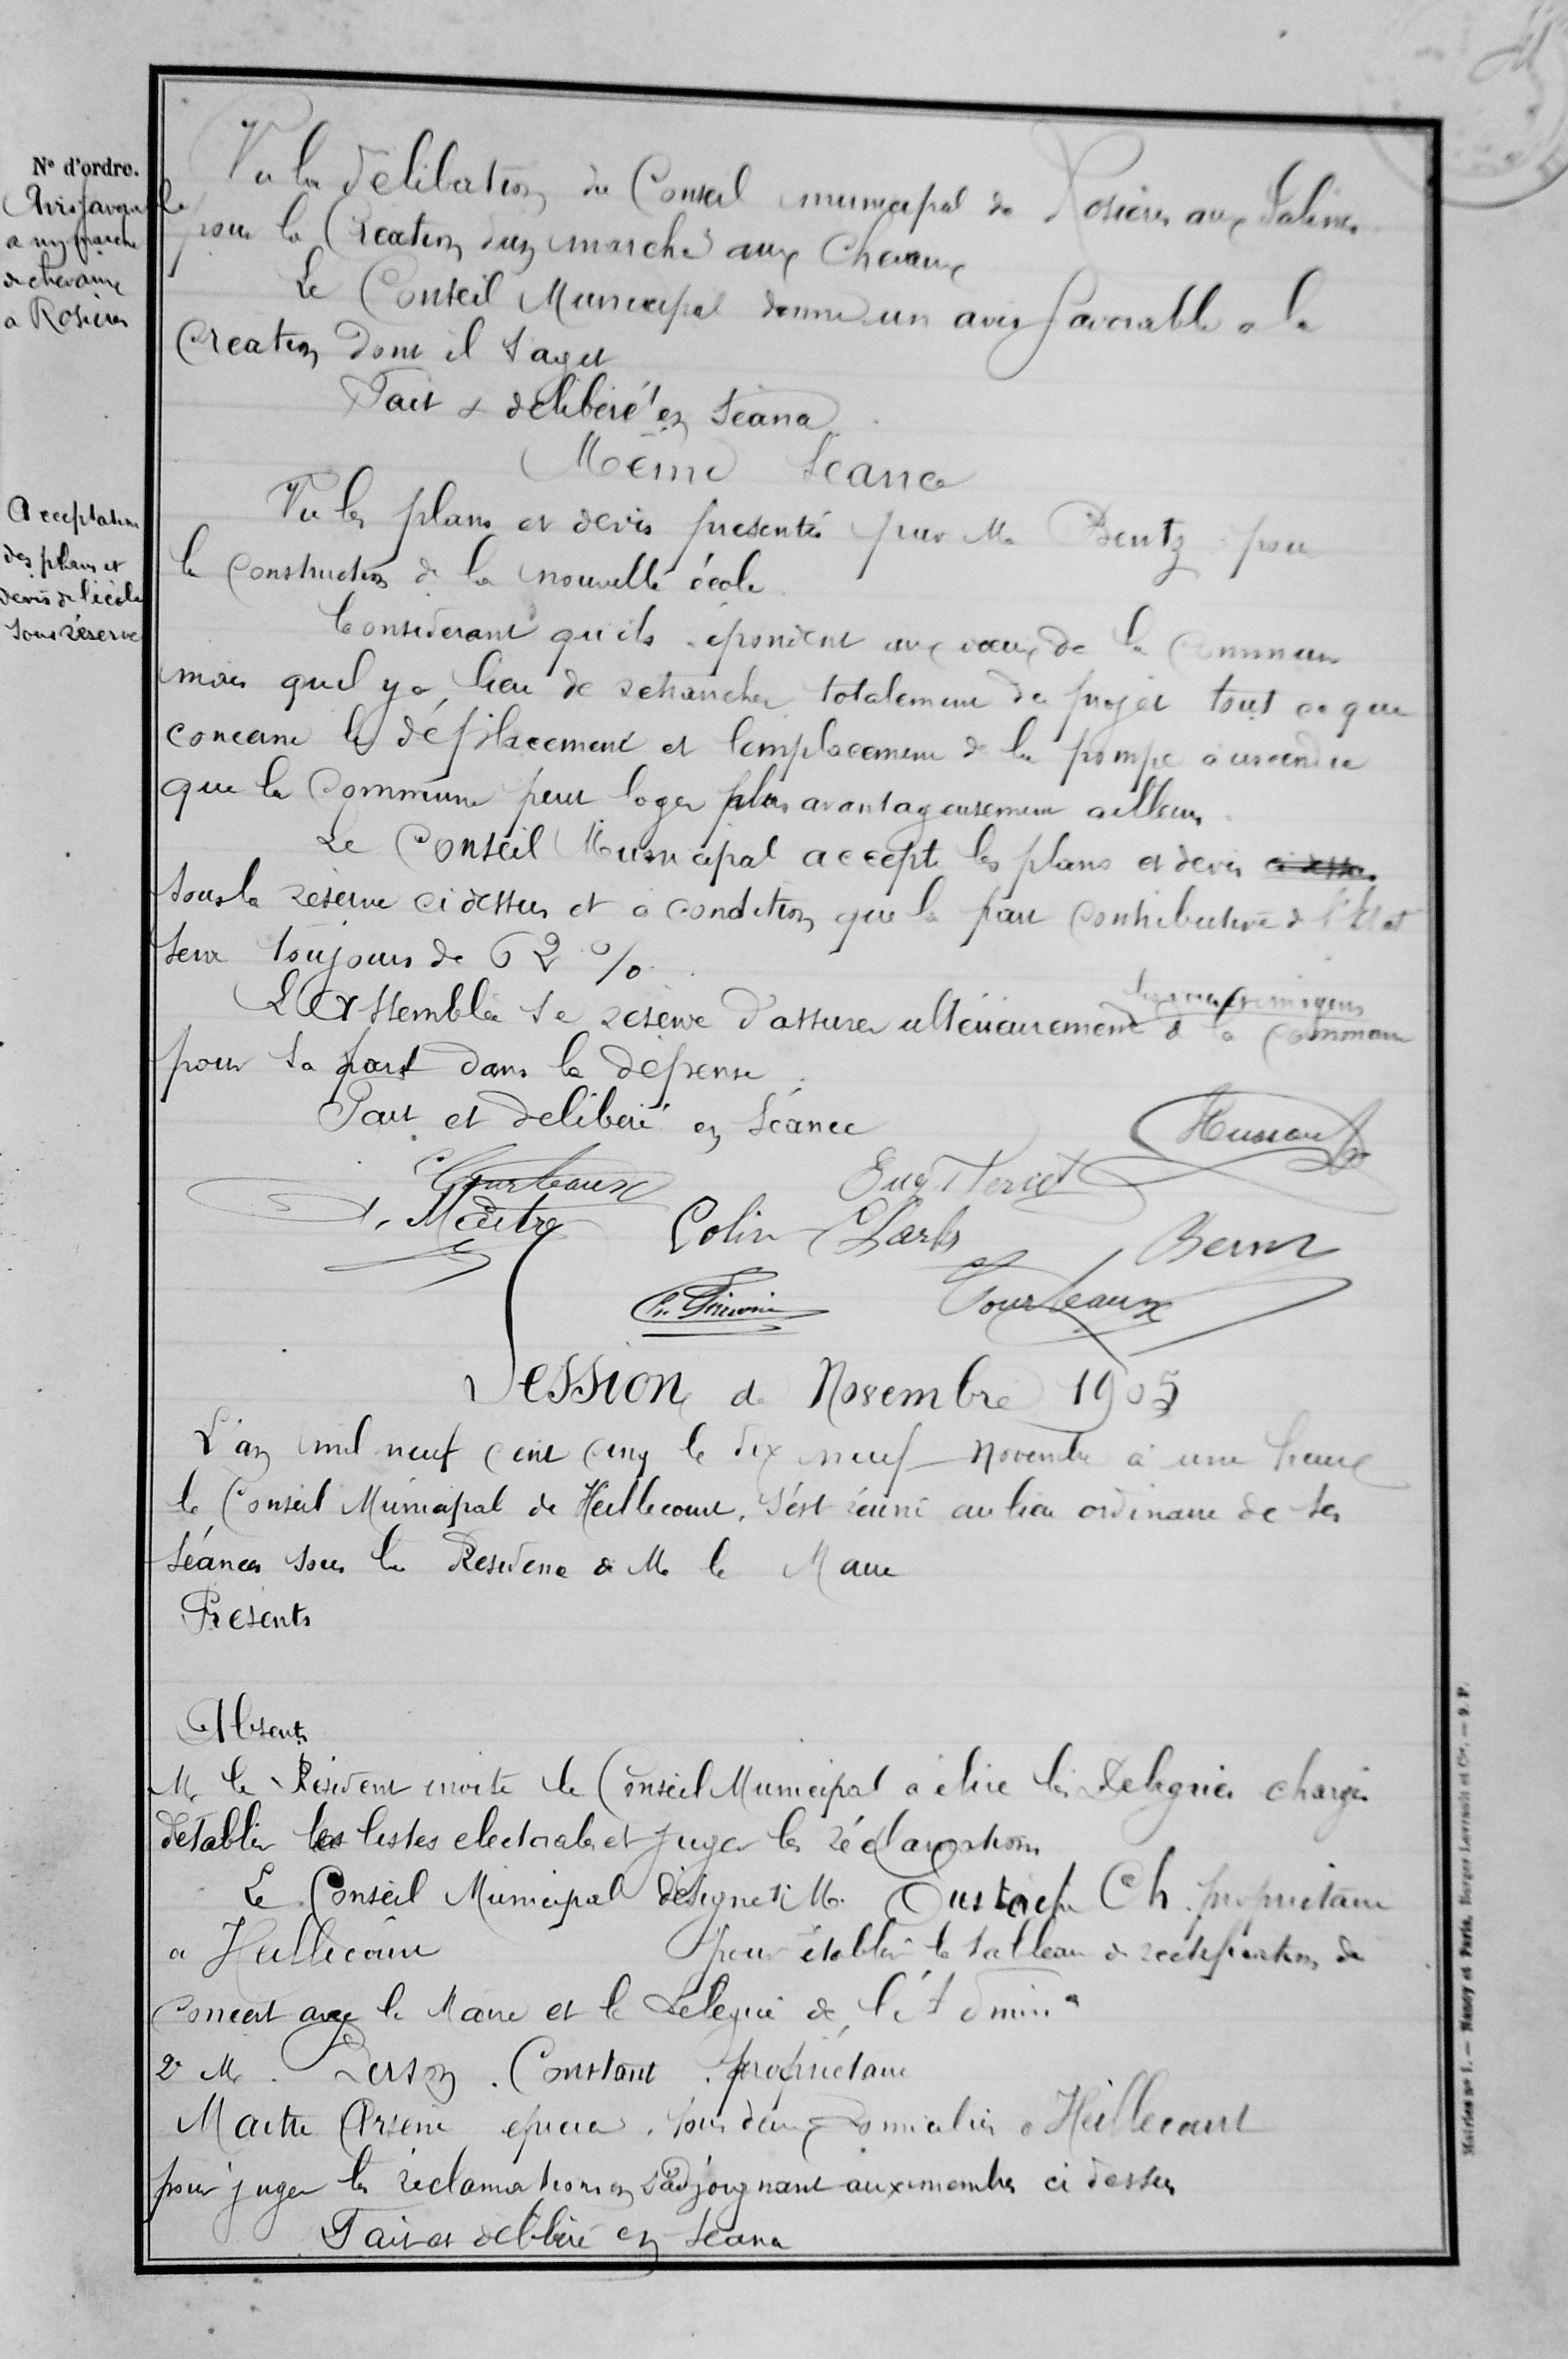 N° d'ordre.
Avis favorable
a un marché
de chevaux
a Rosieres
Vu la délibertion du Conseil municipal de Rosieres aux Salines
pour la Creation d'un marché aux Chevaux
Le Conseil Municipal donne un avis favorable a la
Creation dont il s'agit
Fait & délibéré en Séance
Même Séance
Acceptation
des plans et
devis de l'école
sous réserve
Vu les plans et devis presentés par M. Bentz pour
la Construction de la nouvelle école
Considerant qu'ils reponient aux vœux de la Commune
mais quil y a lieu de retrancher totalement du projet tout ce que
concerne le déplacement et l'emplacement de la pompe a incendie
que la Commune peut loger plus avantageusement ailleurs
Le Conseil Municipal accepte les plans et devis ci dessus
sous la réserve ci dessus et a condition que la part contributive de l'Etat
sera toujours de 62 %.
les moyens
L'Assemblée se réserve d'assurer ultérieurement de la Commune
pour sa part dans la dépense
Fait et délibéré en Séance
Husson
Courteaux Eug
Maitre Colin Charles Berni
Ch. Courteaux
Session de Novembre 1905
L'an mil neuf cent cinq le dix neuf Novembre a une heure
le Conseil Municipal de Heillecourt, s'est réuni au lieu ordinaire de ses
séances sous la Présidence de M. le Maire
Présents
Absents
M. le Président invite le Conseil Municipal a élire les Délégués chargés
d'etablir les listes electorales et juger les réclamations
Le Conseil Municipal désigne 1° M. Ch. propriétaire
a Heillecourt pour établir le tableau de rectification de
concert avec le Maire et le Délégué de l'Admin°
2° M. Person Constant propriétaire
Maitre Arsène epicier, tous deux domiciliés a Heillecourt
pour juger les réclamations en s'adjoignant aux membres ci dessus
Fait et délibéré en Séance
Mairies n° 1. — Nancy et Paris, Berger-Levrault et Cie. — 9. P.